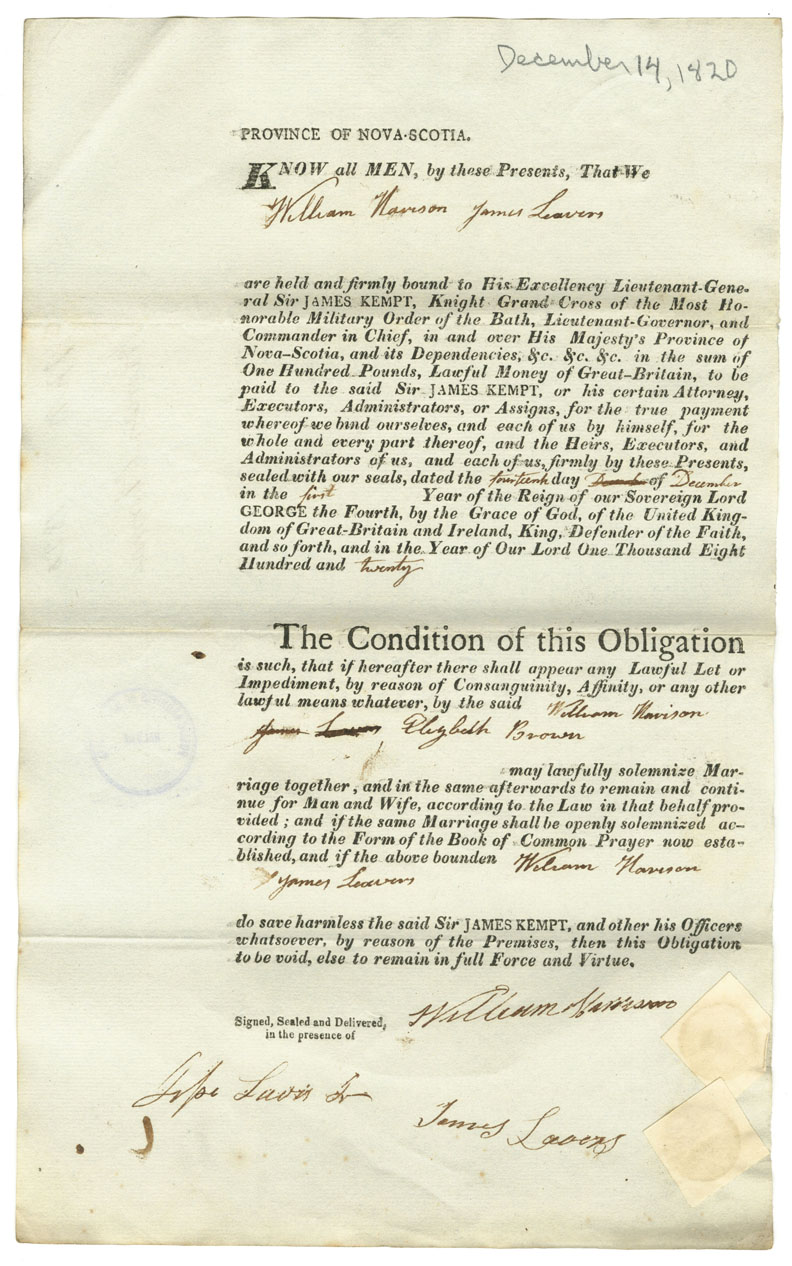 December 14, 1820
PROVINCE OF NOVA-SCOTIA.
KNOW all MEN, by these Presents, That We
William Harison James Leavers
are held and firmly bound to His Excellency Lieutenant-Gene-
ral Sir JAMES KEMPT, Knight Grand Cross of the Most Ho-
norable Military Order of the Bath, Lieutenant-Governor, and
Commander in Chief, in and over His Majesty's Province of
Nova-Scotia, and its Dependencies, &c. &c. &c. in the sum of
One Hundred Pounds, Lawful Money of Great-Britain, to be
paid to the said Sir JAMES KEMPT, or his certain Attorney,
Executors, Administrators, or Assigns, for the true payment
whereof we bind ourselves, and each of us by himself, for the
whole and every part thereof, and the Heirs, Executors, and
Administrators of us, and each of us, firmly by these Presents,
sealed with our seals, dated the fourteenth day of December
in the first Year of the Reign of our Sovereign Lord
GEORGE the Fourth, by the Grace of God, of the United King-
dom of Great-Britain and Ireland, King, Defender of the Faith,
and so forth, and in the Year of Our Lord One Thousand Eight
Hundred and twenty
The Condition of this Obligation
is such, that if hereafter there shall appear any Lawful Let or
Impediment, by reason of Consanguinity, Affinity, or any other
lawful means whatever, by the said William Harison
James Elizbeth Brown
may lawfully solemnize Mar-
riage together, and in the same afterwards to remain and conti-
nue for Man and Wife, according to the Law in that behalf pro-
vided ; and if the same Marriage shall be openly solemnized ac-
cording to the Form of the Book of Common Prayer now esta-
blished, and if the above bounden William Harison
James Leavers
do save harmless the said Sir JAMES KEMPT, and other his Officers
whatsoever, by reason of the Premises, then this Obligation
to be void, else to remain in full Force and Virtue.
William Harison
Signed, Sealed and Delivered,
in the presence of
James Lavers